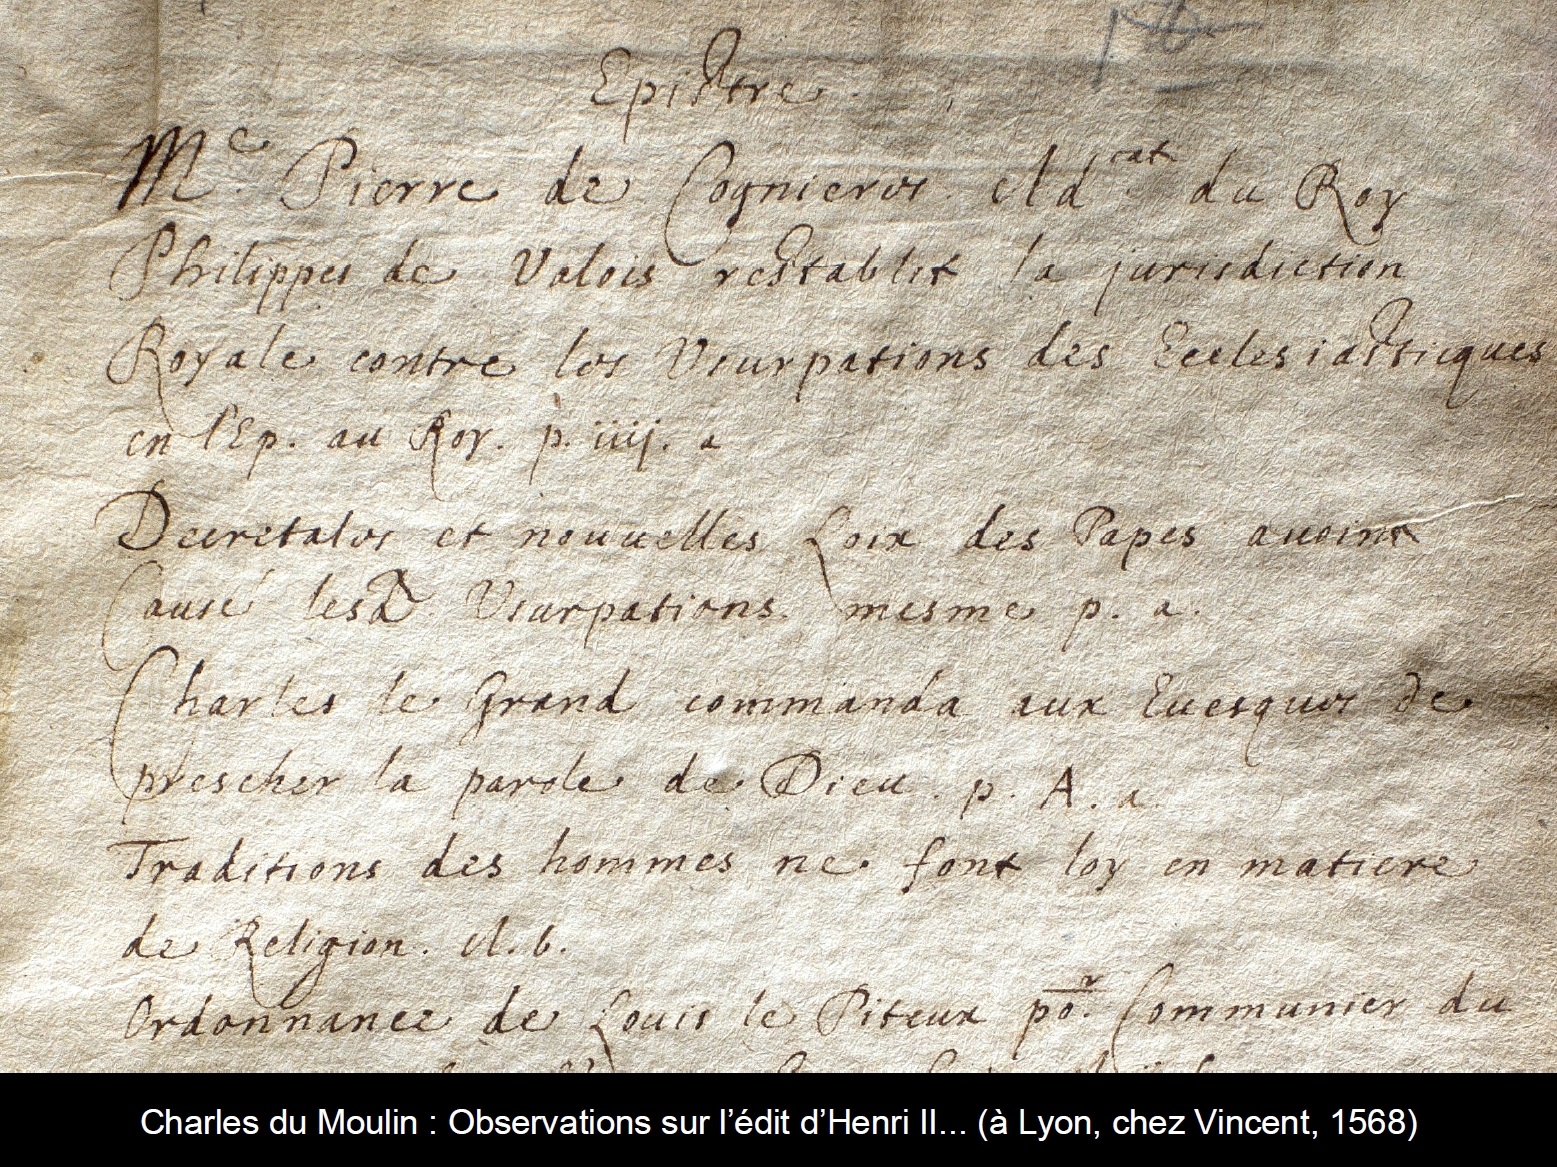 Epistre.
Me. Pierre de Cognieres. Adcat. du Roy
Philippes de Valois restablit la jurisdiction
Royale contre les Vsurpations des Ecclesiasticques
en l'Ep. au Roy. p. iiij. a
Decretales et nouuelles Loix des Papes auoint
Causé lesd Vsurpations. mesme p. a.
Charles le Grand commanda aux Euesques de
prescher la parole de Dieu. p. A. a.
Traditions des hommes ne font loy en matiere
de Religion. A. b.
Ordonnance de Louis le Piteux por. Communier du
Charles du Moulin : Observations sur l’édit d’Henri II... (à Lyon, chez Vincent, 1568)